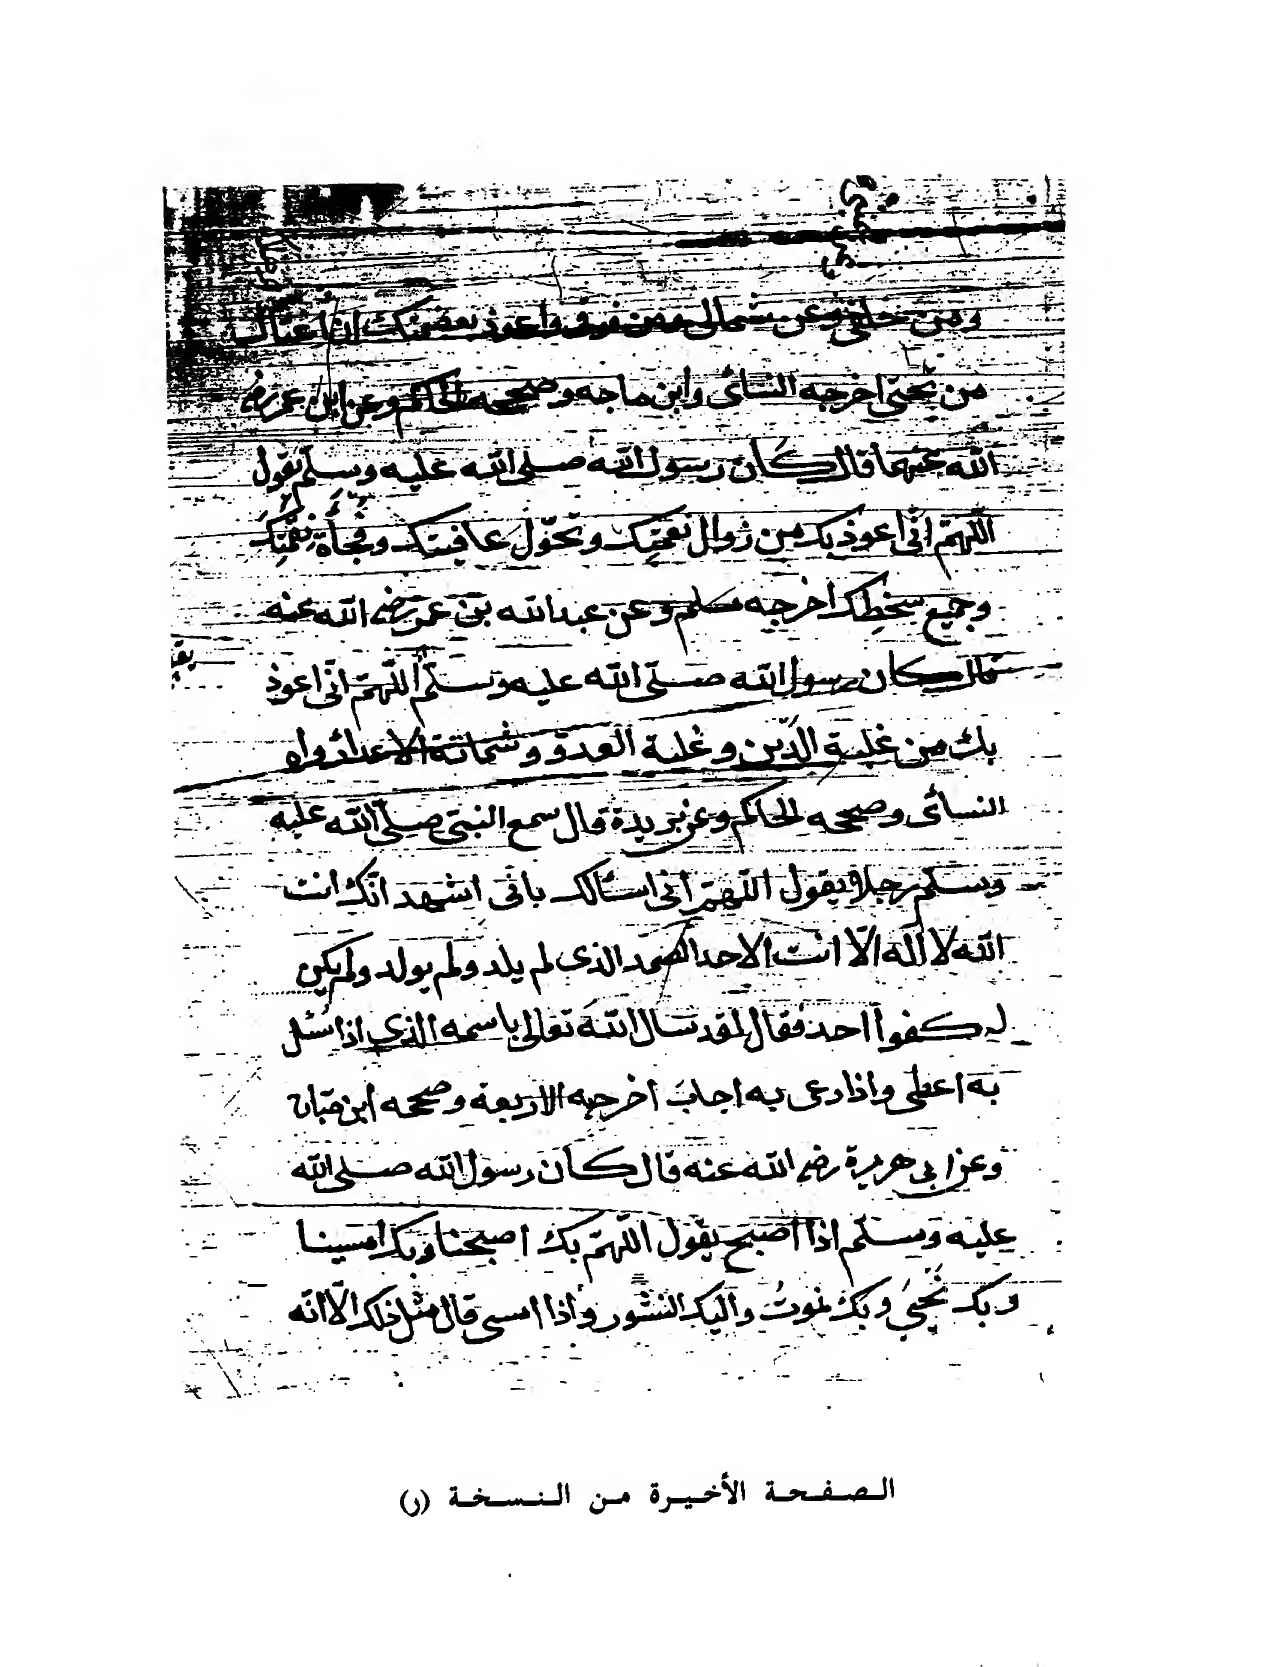 ومن خلفي وعن شمالي ومن فوقي واعوذ بعضمتك ان اغتال
من تحتي اخرجه النسائى وابن ماجه وصححه الحاكم وعن ابن عمر رضي
الله عنهما قال كان رسول الله صلى الله عليه وسلم يقول
اللّهمّ انّى اعوذ بك من زوال نعمتِك وتحوّل عافيتك وفجأة نِقمتِك
وجميع سخطِك اخرجه مسلم وعن عبد الله بن عمر رضي الله عنه
قال كان رسول الله صلّى الله عليه وسلّم اللّهمّ انّى اعوذ
بك من غلبة الدّين وغلبة العدوّ وشماتة الاعداء رواه
النسائى وصححه الحاكم وعن بريدة قال سمع النبىّ صلّى الله عليه
وسلم رجلا يقول اللّهمّ انى اسئالك بانى اشهد انّك انت
الله لا اله الّا انت الاحد الصّمد الذى لم يلد ولم يولد ولم يكن
له كفواً احد فقال لقد سال الله تعالى باسمه الذي اذا سُئل
به اعطى واذا دعى به اجاب اخرجه الاربعة وصححه ابن حبان
وعن ابى هريرة رضي الله عنه قال كان رسول الله صلى الله
عليه وسلّم اذا اصبح يقول اللّهمّ بك اصبحنا وبك امسينا
وبك نَحيىَ وبك نموتُ واليك النشور واذا امسى قال مثل ذلك الّا انّه
الصفحة الأخيرة من النسخة (ر)